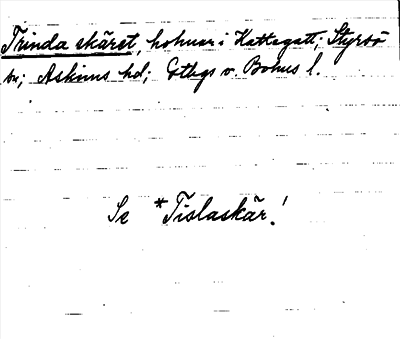 Trinda skäret, holmar i Kattegatt, Styrsö
sn; Askims hd; Gtbgs o. Bohus l.
Se *Tislaskär!